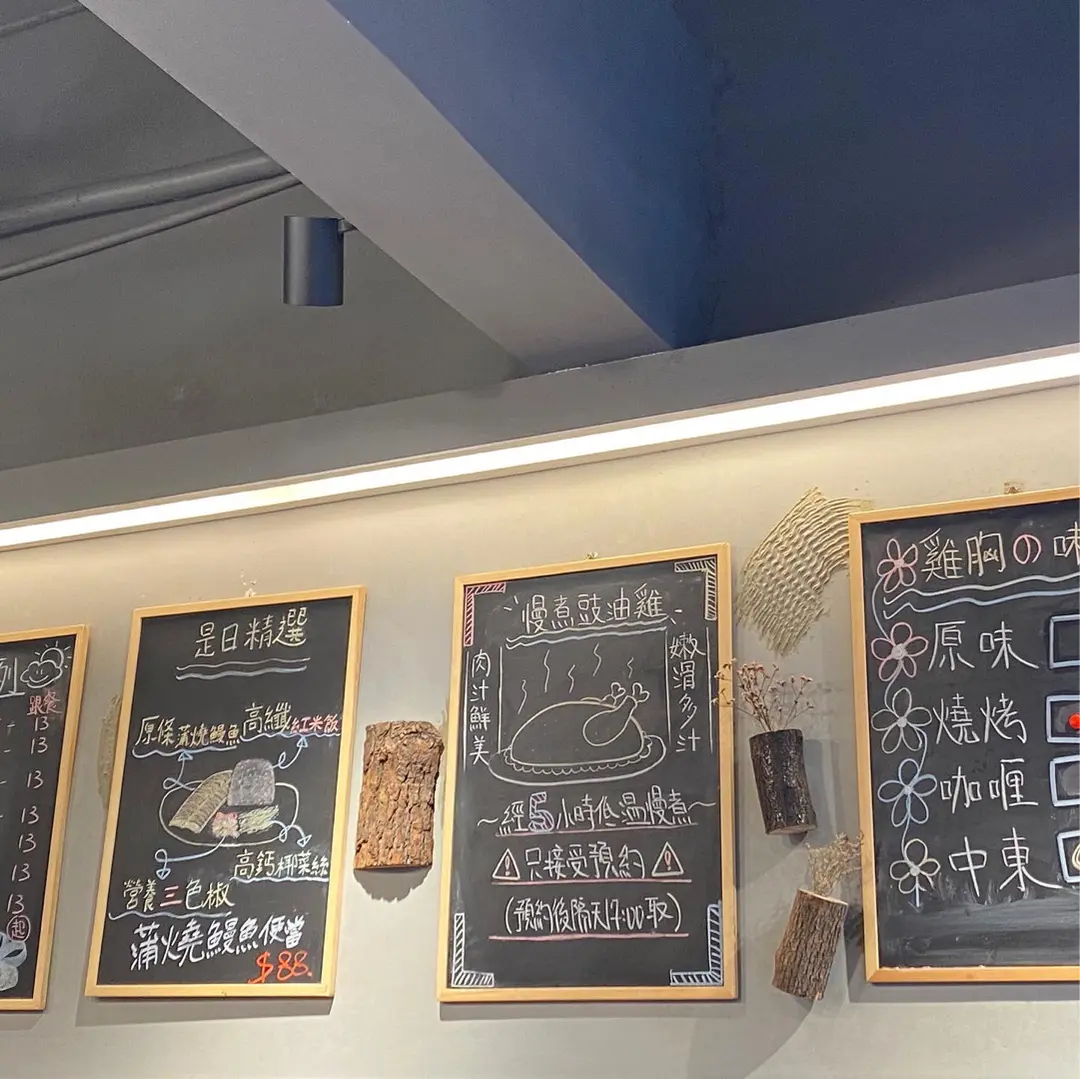 列
跟餐
13
13
13
13
13
13
13
起
是日精選
原條蒲燒鰻魚
高纖紅米飯
高鈣椰菜絲
營養三色椒
蒲燒鰻魚便當
$88.
慢煮豉油雞
肉汁鮮美
嫩滑多汁
~經5小時低温慢煮~
只接受預約
(預約後隔天17:00取)
雞胸の味
原味
燒烤
咖喱
中東